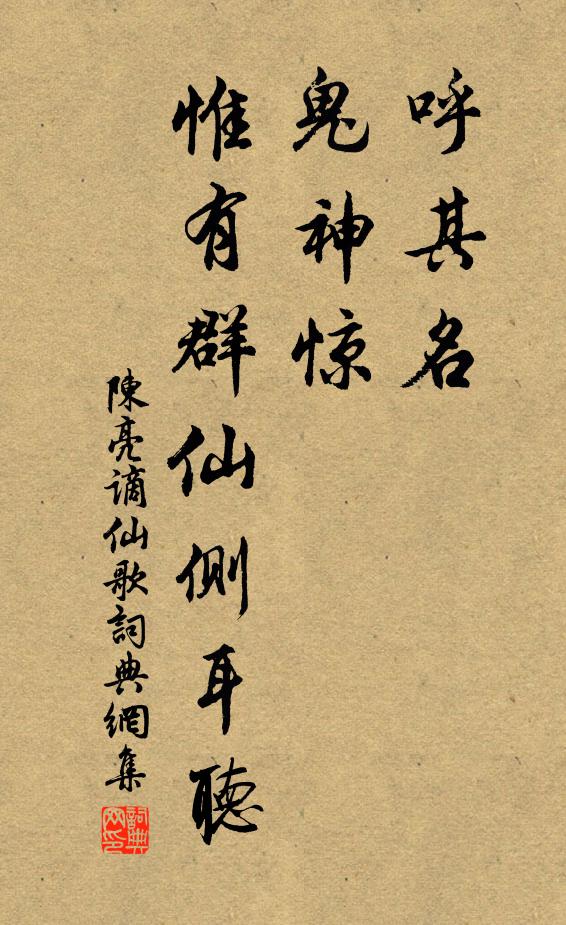 呼其名
鬼神惊
惟有群仙侧耳聽
陳亮谪仙歌詞典網集
詞典网印